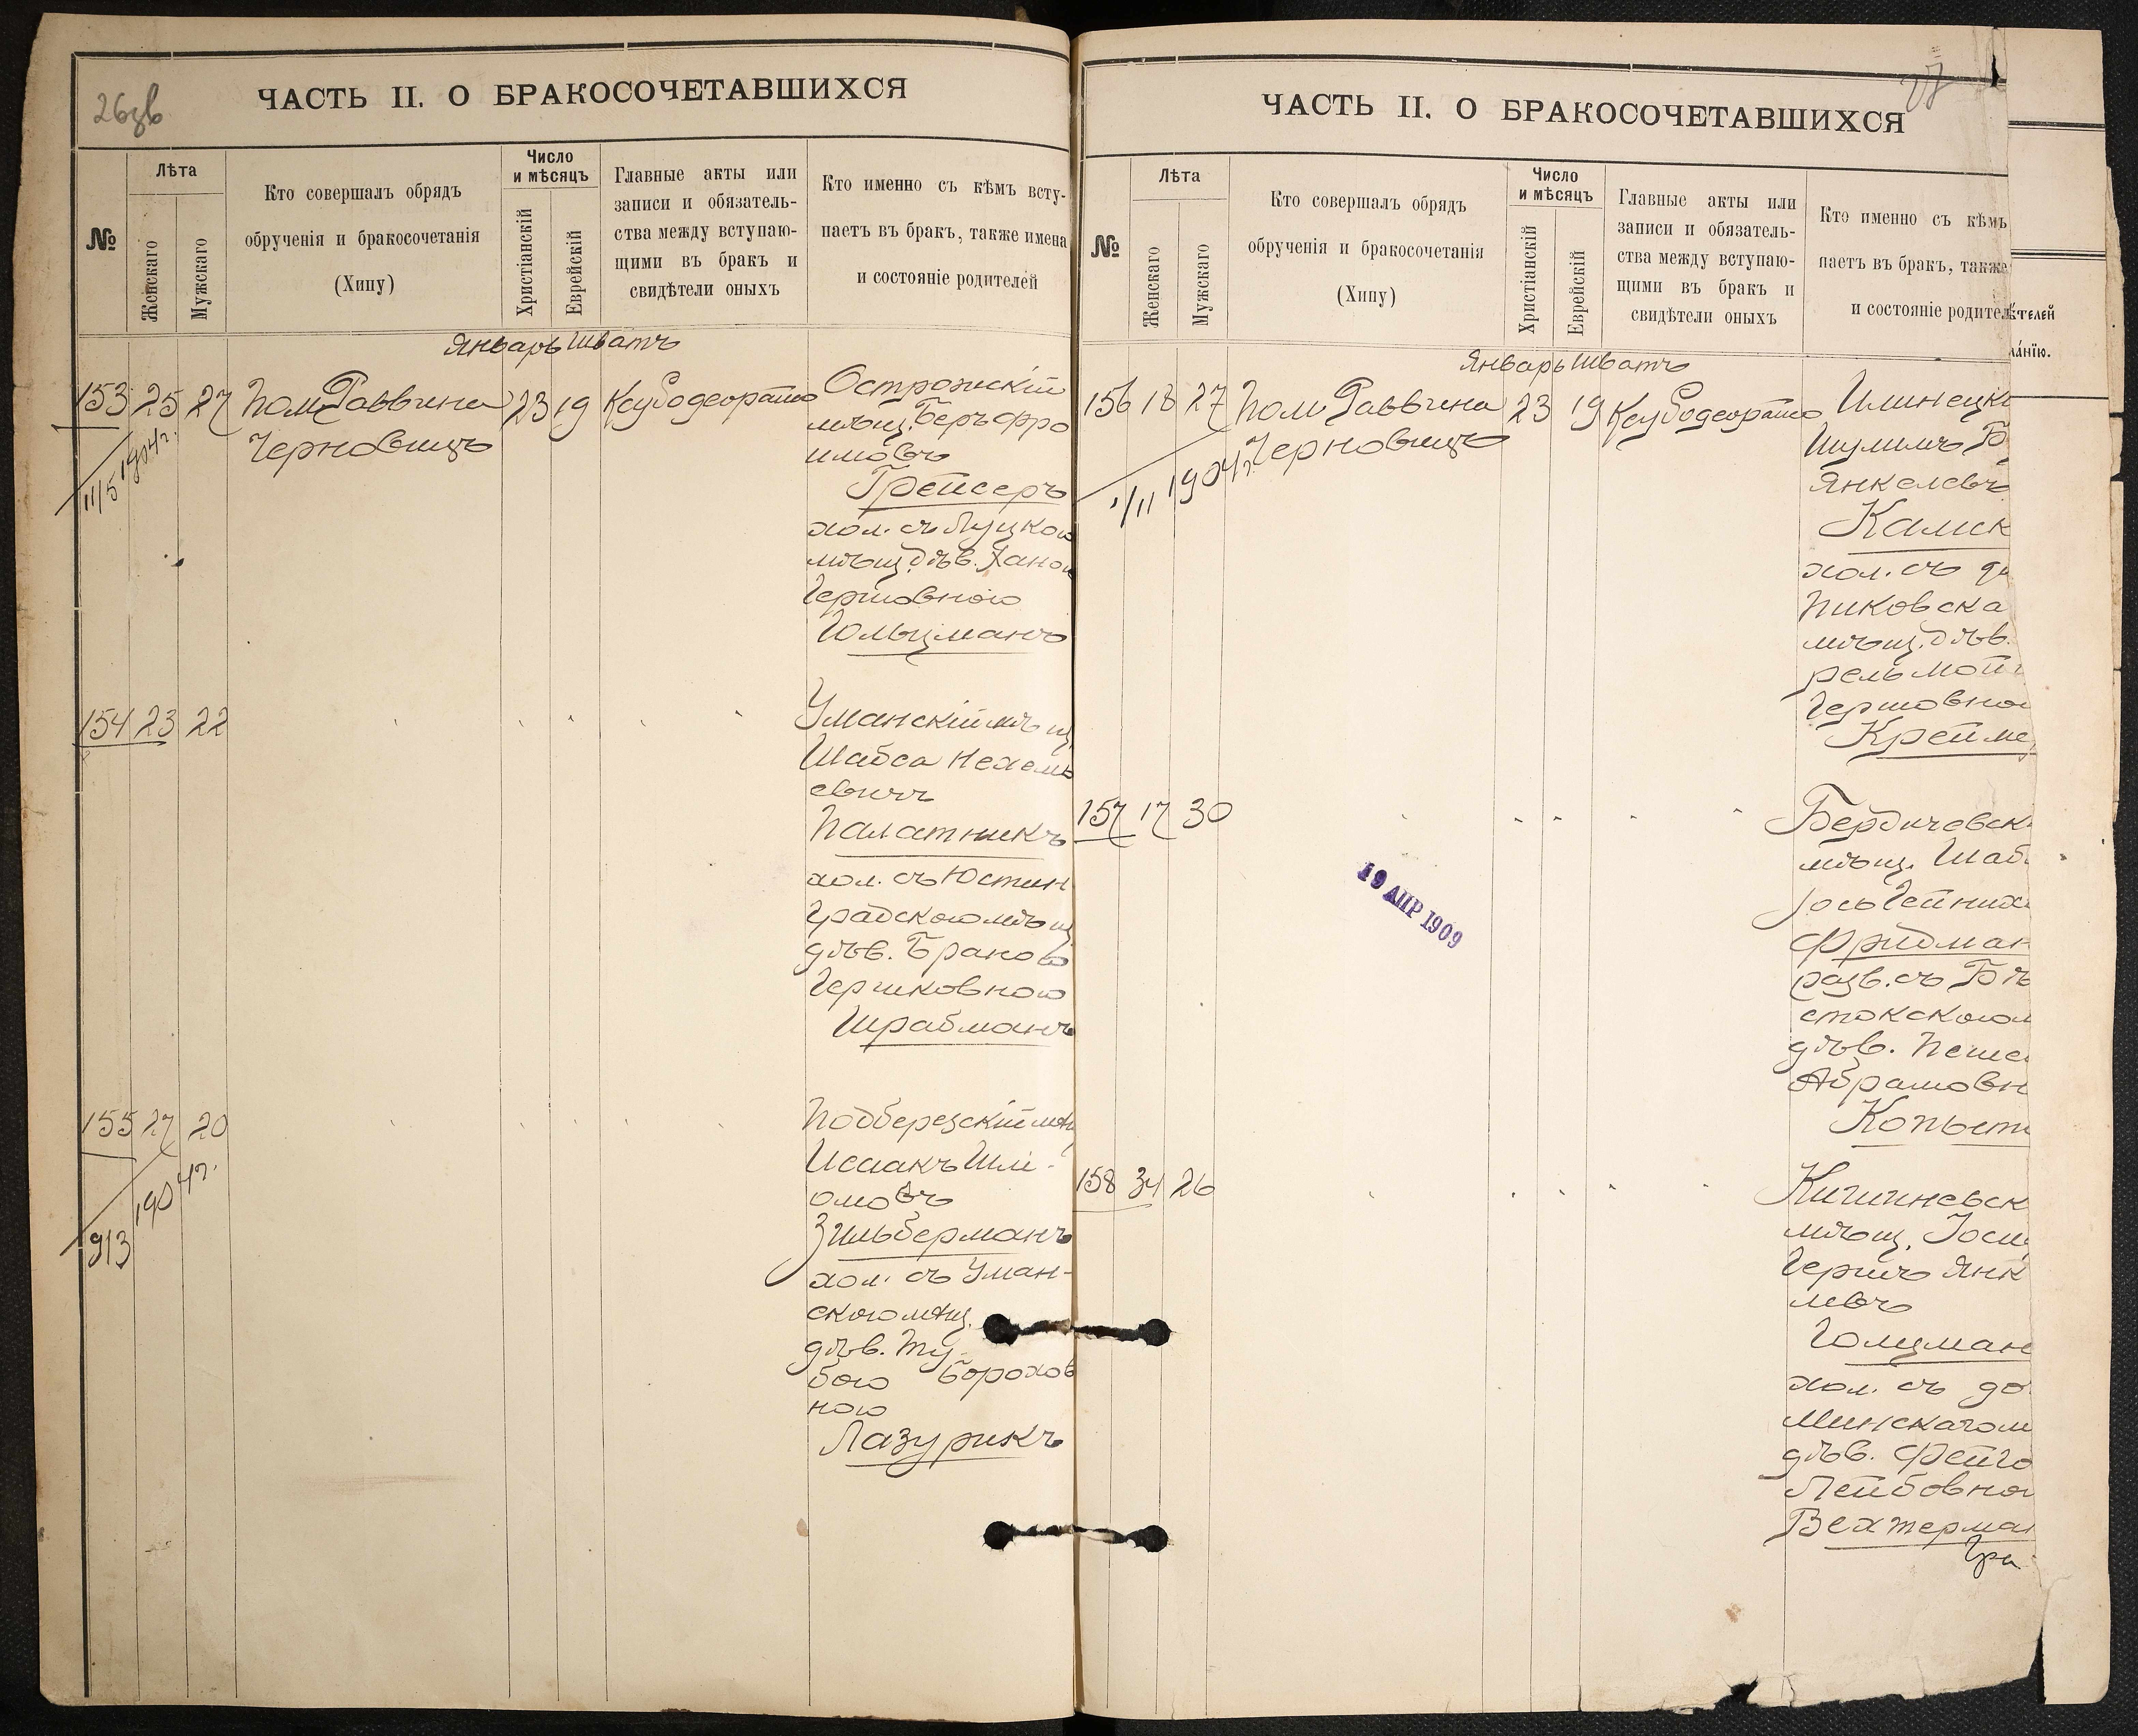 26зв
ЧАСТЬ II. О БРАКОСОЧЕТАВШИХСЯ
№
Лѣта
Женскаго
Мужскаго
Кто совершалъ обрядъ
обрученія и бракосочетанія
(Хипу)
Число
и мѣсяцъ
Христіанскій
Еврейскій
Главные акты или
записи и обязатель-
ства между вступаю-
щими въ бракъ и
свидѣтели оныхъ
Кто именно съ кѣмъ всту-
паетъ въ бракъ, также имена
и состояніе родителей
Январь Шватъ
153 25 27 Пом Раввина 23 19
Черновицъ
11/5 1904г.
Острожскій
мѣщ. Беръ Фро
имовъ
Грейсеръ
хол. съ Луцкою
мѣщ. дѣв. Ханою
Гершовною
Гольцманъ
154 23 22
Уманскій мѣщ.
Шабса Нехемь
евичъ
Палатникъ
хол. съ Юстин
градскою мѣщ
дѣв. Браною
Гершковною
Шрабманъ
155 27 20
913 1904г.
Подберезскій мѣщ
Исаакъ Шлі-
омовъ
Зильберманъ
хол. съ Уман-
скою мѣщ.
дѣв. Ту-
бою Борохов
ною
Лазурикъ
ЧАСТЬ II. О БРАКОСОЧЕТАВШИХСЯ
27
№
Лѣта
Женскаго
Мужскаго
Кто совершалъ обрядъ
обрученія и бракосочетанія
(Хипу)
Число
и мѣсяцъ
Христіанскій
Еврейскій
Главные акты или
записи и обязатель-
ства между вступаю-
щими въ бракъ и
свидѣтели оныхъ
Кто именно съ кѣмъ
паетъ въ бракъ, также
и состояніе родител
Январь Шватъ
156 18 27 Пом Раввина 23 19
Черновицъ
1/11 1904г.
Илинецкі
Шулимъ Б
Янкелевъ
Камск
хол. съ
Пиковска
мѣщ. дѣв.
Гершовною
Крейме
157 17 30
Бердичевск
мѣщ. Шаб
Фридман
разв. съ Бѣ
стокскою
дѣв. Песе
Абрамовн
Копыт
19 АПР 1909
158 34 26
Кишиневск
мѣщ. Іос
Гершъ Янк
левъ
Голцман
хол. съ до
Минскаго м
дѣв. Фейго
Лейбовно
Вехтерман